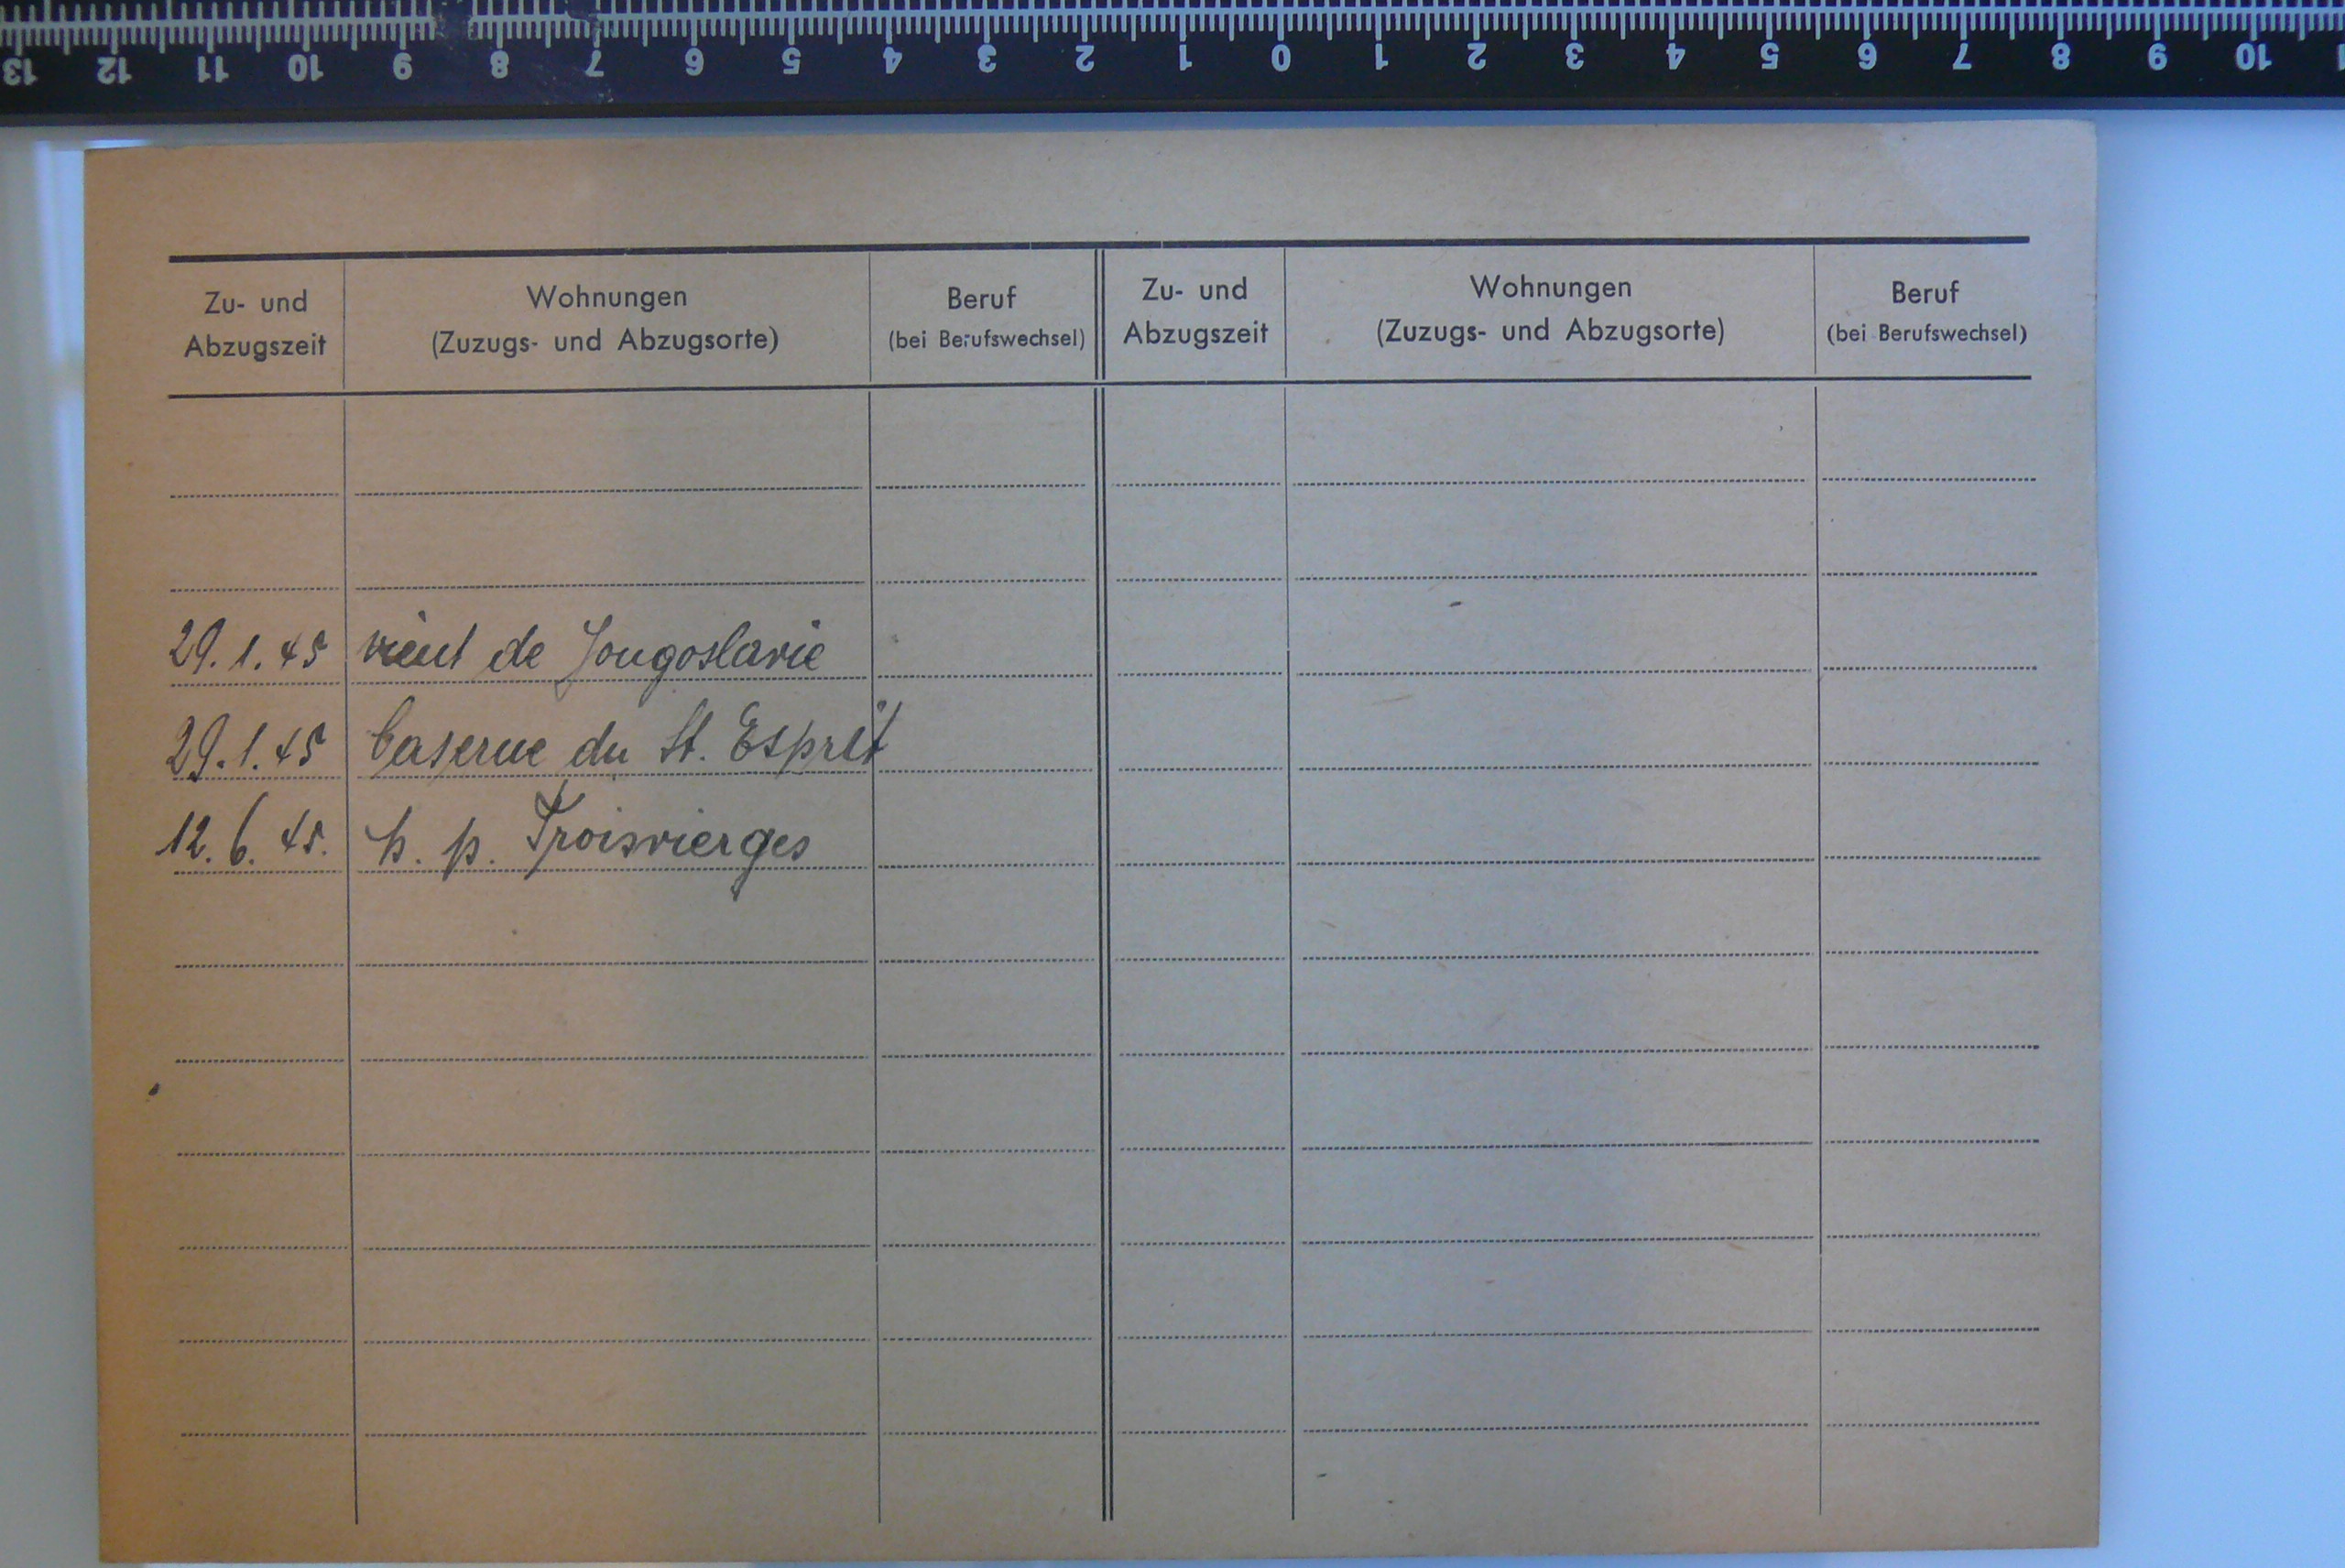 13 12 11 10 9 8 7 6 5 4 3 2 1 0 1 2 3 4 5 6 7 8 9 10
Zu- und Abzugszeit
Wohnungen
(Zuzugs- und Abzugsorte)
Beruf
(bei Berufswechsel)
Zu- und Abzugszeit
Wohnungen
(Zuzugs- und Abzugsorte)
Beruf
(bei Berufswechsel)
29.1.45 vient de Yougoslavie
29.1.45 Caserne du St. Esprit
12.6.45. p. Troisvierges